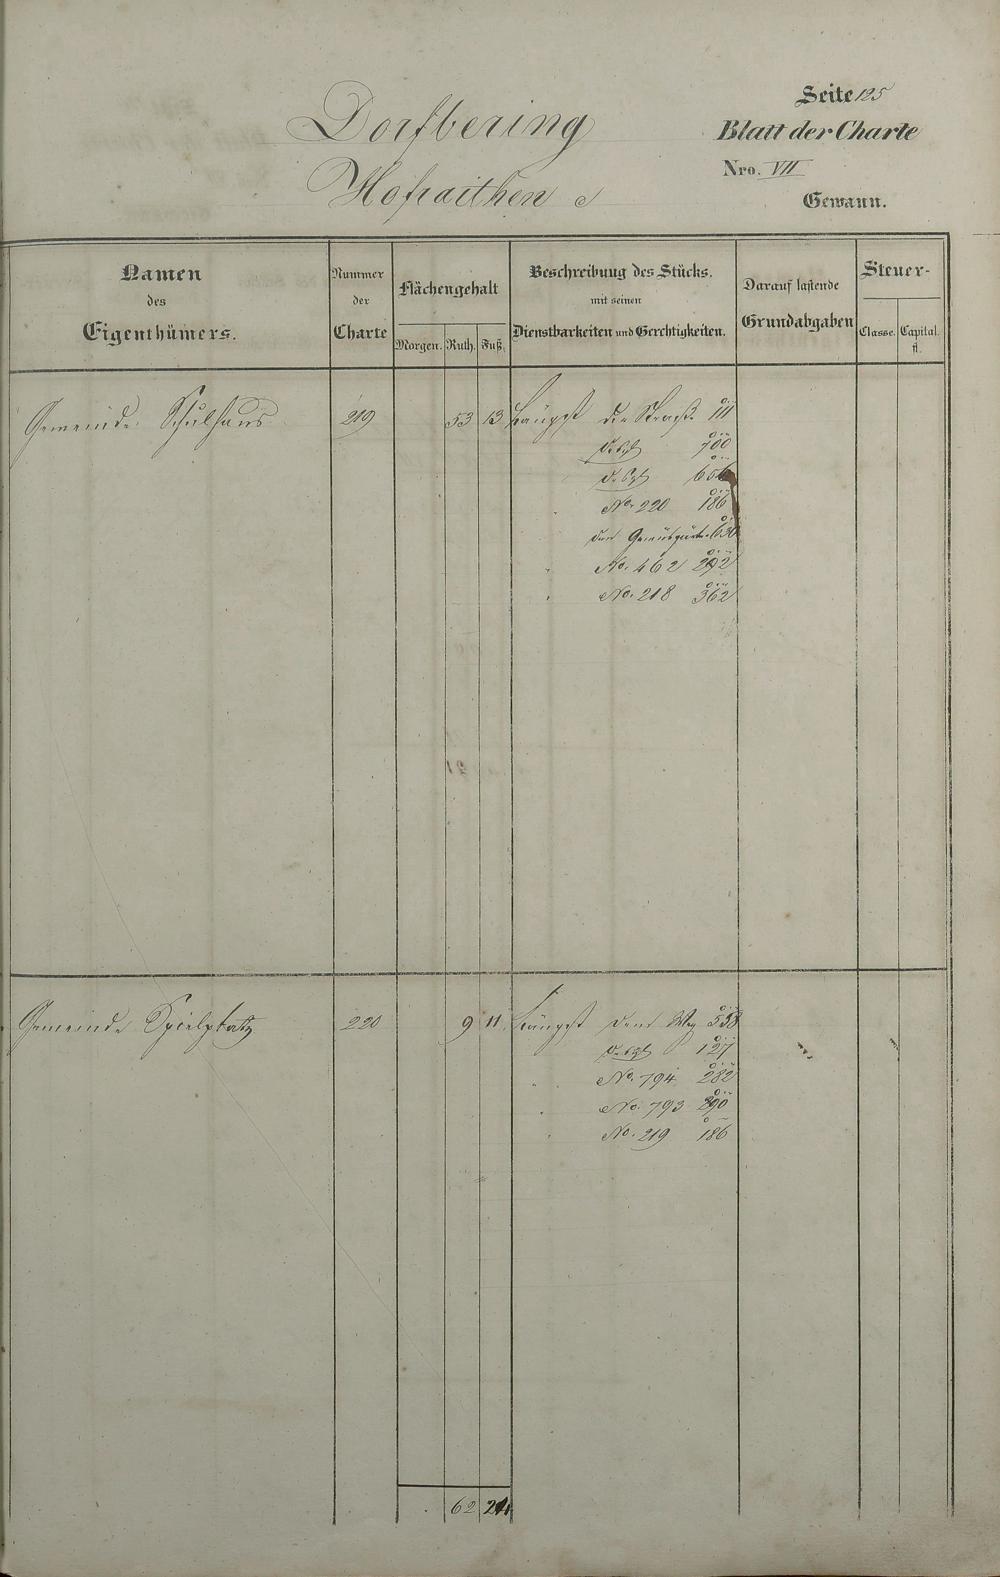 Seite 125
Dorfbering
Blatt der Charte
Hofraithen
Nro. VII
Gewann.
Namen
des
Eigenthümers.
Nummer
der
Charte
Flächengehalt
Morgen. Ruth. Fuß.
Beschreibung des Stücks.
mit seinen
Dienstbarkeiten und Gerechtigkeiten.
Darauf lastende
Grundabgaben
Steuer-
Classe. Capital.
fl.
Gemeinde Schulhaus 219 53 13 Längst die Straße 111
desgl 700
desgl 656
No. 220 186
den 630
No. 462 292
No. 218 362
Gemeinde Spielplatz 220 9 11 Längst dem Weg 558
desgl 127
No. 794 282
No. 793 290
No. 219 186
62 24